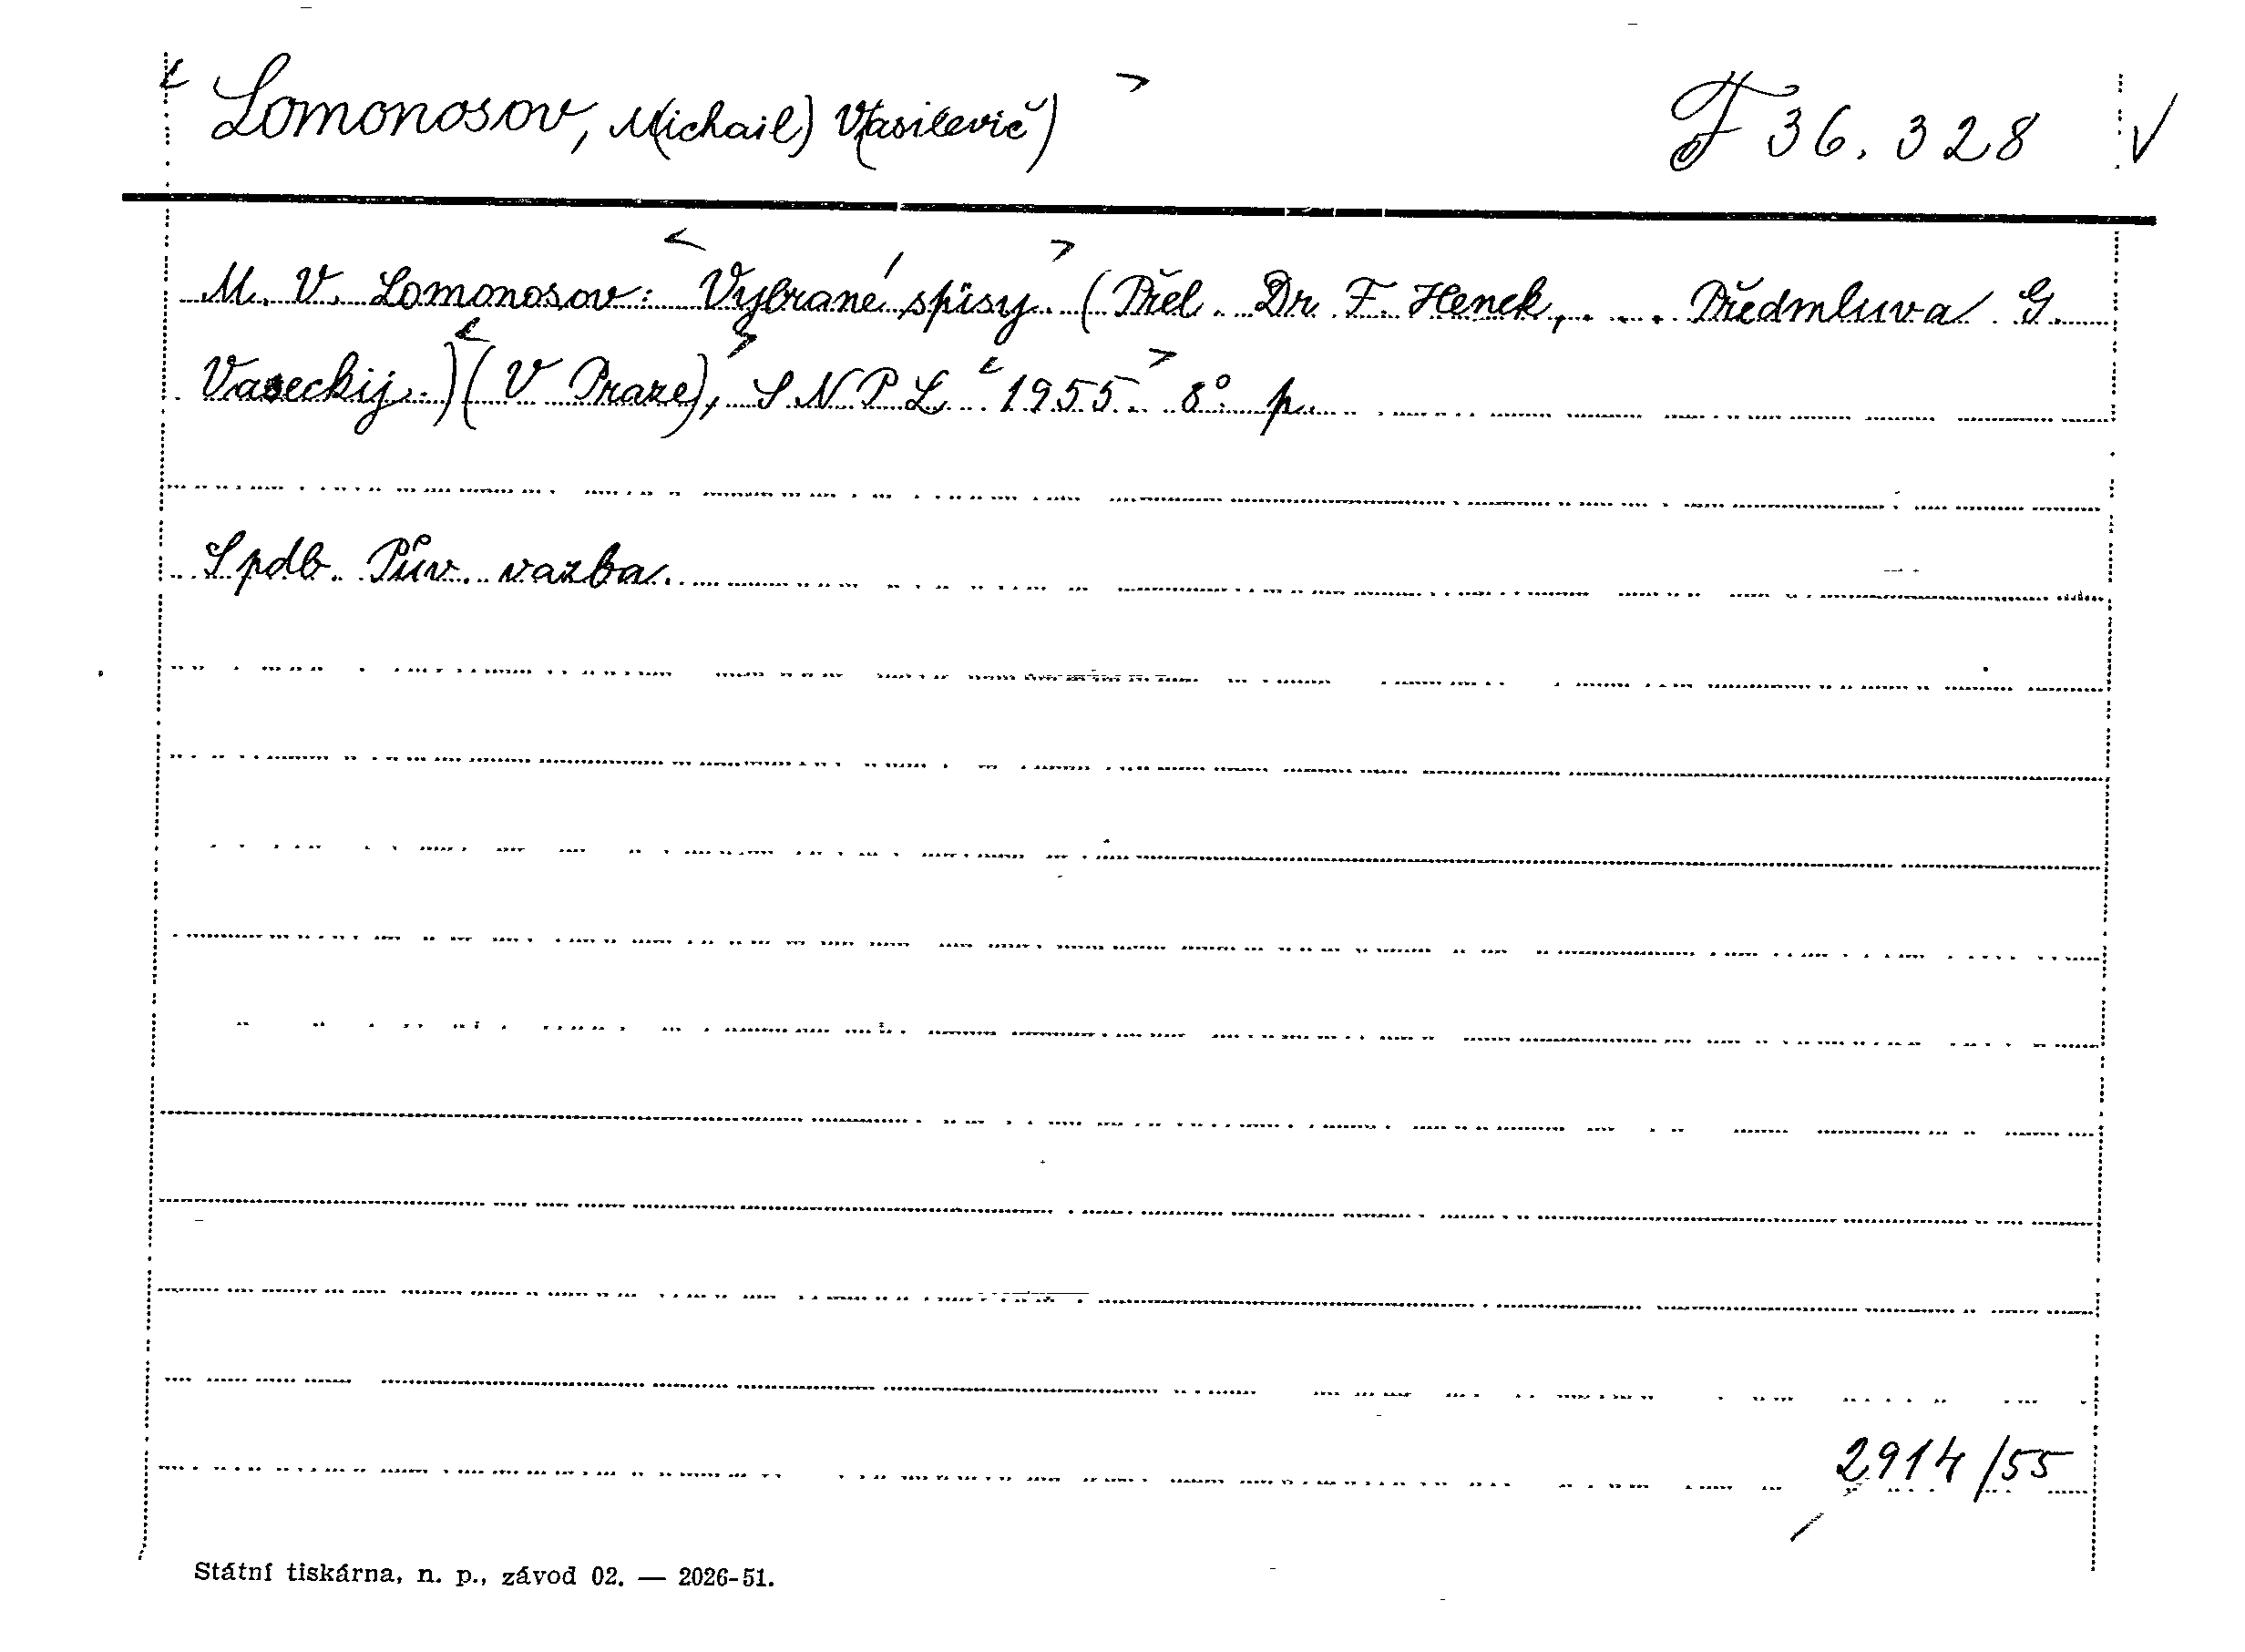 < Lomonosov, M(ichail) V(asilevič) > F 36.328 √
M. V. Lomonosov: < Vybrané spisy. > (Přel. Dr. F. Henek, ... Předmluva G.
Vaseckij.) < (V Praze), > SNPL < 1955. > 8° p.
Spdb. Pův. vazba.
2914/55
Státní tiskárna, n. p., závod 02. — 2026-51.